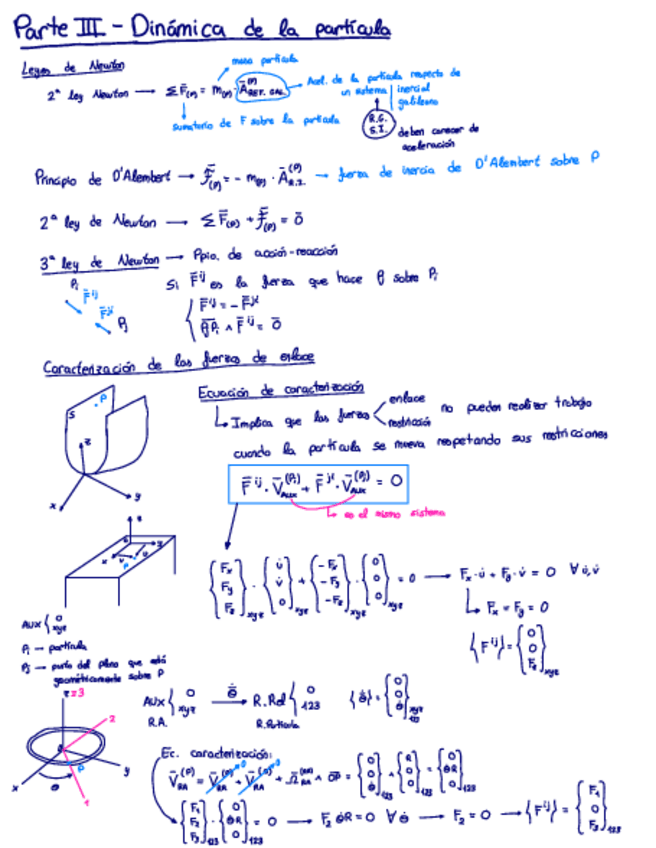 Parte III - Dinámica de la partícula
Leyes de Newton
masa partícula
2ª ley Newton → ΣF̄(P) = m(P) · Ā(P) REF. GAL.
Acel. de la partícula respecto de
un sistema | inercial
galileano
sumatorio de F sobre la partícula
R.G.
S.I.
deben carecer de
aceleración
Principio de D'Alembert → F̄(P) = - m(P) · Ā(P) R.I. → fuerza de inercia de D'Alembert sobre P
2ª ley de Newton → ΣF̄(P) + F̄(P) = 0̄
3ª ley de Newton → Ppio. de acción-reacción
Pi
F̄ij
F̄ji
Pj
Si F̄ij es la fuerza que hace Pj sobre Pi
F̄ij = - F̄ji
PjPi ∧ F̄ij = 0̄
Caracterización de las fuerzas de enlace
Ecuación de caracterización
Implica que las fuerzas < enlace restricción no pueden realizar trabajo
cuando la partícula se mueva respetando sus restricciones
F̄ij · V̄AUX(Pi) + F̄ji · V̄AUX(Pj) = 0
es el mismo sistema
S
P
z
x
y
{Fx Fy Fz}xyz · {u̇ v̇ 0}xyz + {-Fx -Fy -Fz}xyz · {0 0 0}xyz = 0 → Fx · u̇ + Fy · v̇ = 0 ∀ u̇,v̇
Fx = Fy = 0
{F̄ij} = {0 0 Fz}xyz
AUX { 0 xyz
Pi → partícula
Pj → punto del plano que está
geométricamente sobre P
z≡3
2
1
x
y
θ
P
AUX { 0 xyz → θ̇ → R.Rel { 0 123
R.A.
R.Partícula
{θ̇} = {0 0 θ̇}xyz 123
Ec. caracterización:
V̄RA(P) = V̄RA(P) + V̄RA(O) + Ω̄RA(RR) ∧ OP = {0 0 θ̇}123 ∧ {R 0 0}123 = {0 θ̇R 0}123
{F1 F2 F3}123 · {0 θ̇R 0}123 = 0 → F2 θ̇R = 0 ∀ θ̇ → F2 = 0 → {F̄ij} = {F1 0 F3}123